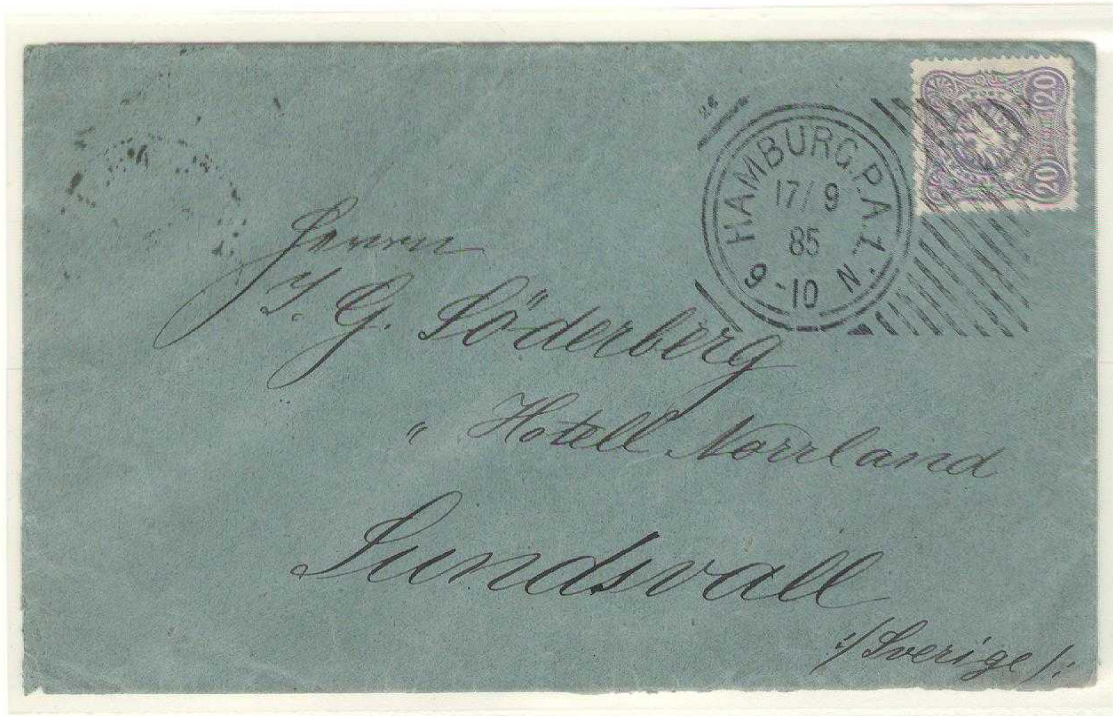 20
20
HAMBURG.P.A.1.
17/9
85
9-10 N
Herrn
J. G. Söderberg
" Hotell Norrland
Sundsvall
:/Sverige/: